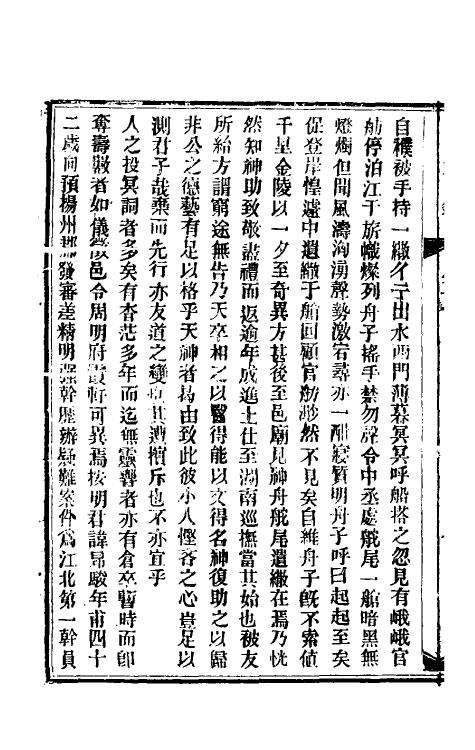 自襆被手持一繖彳亍出水西門薄暮冥冥呼船搭之忽見有峨峨官
舫停泊江干旂幟燦列舟子搖手禁勿聲令中丞處艉尾一艙暗黑無
燈燭但聞風濤洶湧聲勢激宕尋亦一酣寢質明舟子呼曰起起至矣
促登岸惶遽中遺繖于船回顧官舫渺然不見矣自維舟子旣不索値
千里金陵以一夕至奇異方甚後至邑廟見神舟艉尾遺繖在焉乃恍
然知神助致敬盡禮而返逾年成進士仕至湖南巡撫當其始也被友
所紿方謂窮途無告乃天卒相之以醫得能以文得名神復助之以歸
非公之德藝有足以格乎天神者曷由致此彼小人慳吝之心豈足以
測君子哉藥而先行亦友道之變也其遭擯斥也不亦宜乎
人之投冥詞者多矣有杳茫多年而迄無靈響者亦有倉卒暫時而卽
奪壽數者如儀徵故邑令周明府霞軒可異焉按明君諱昻駿年甫四十
二歲向預楊州郡發審差精明强幹歷辦疑難案件爲江北第一幹員